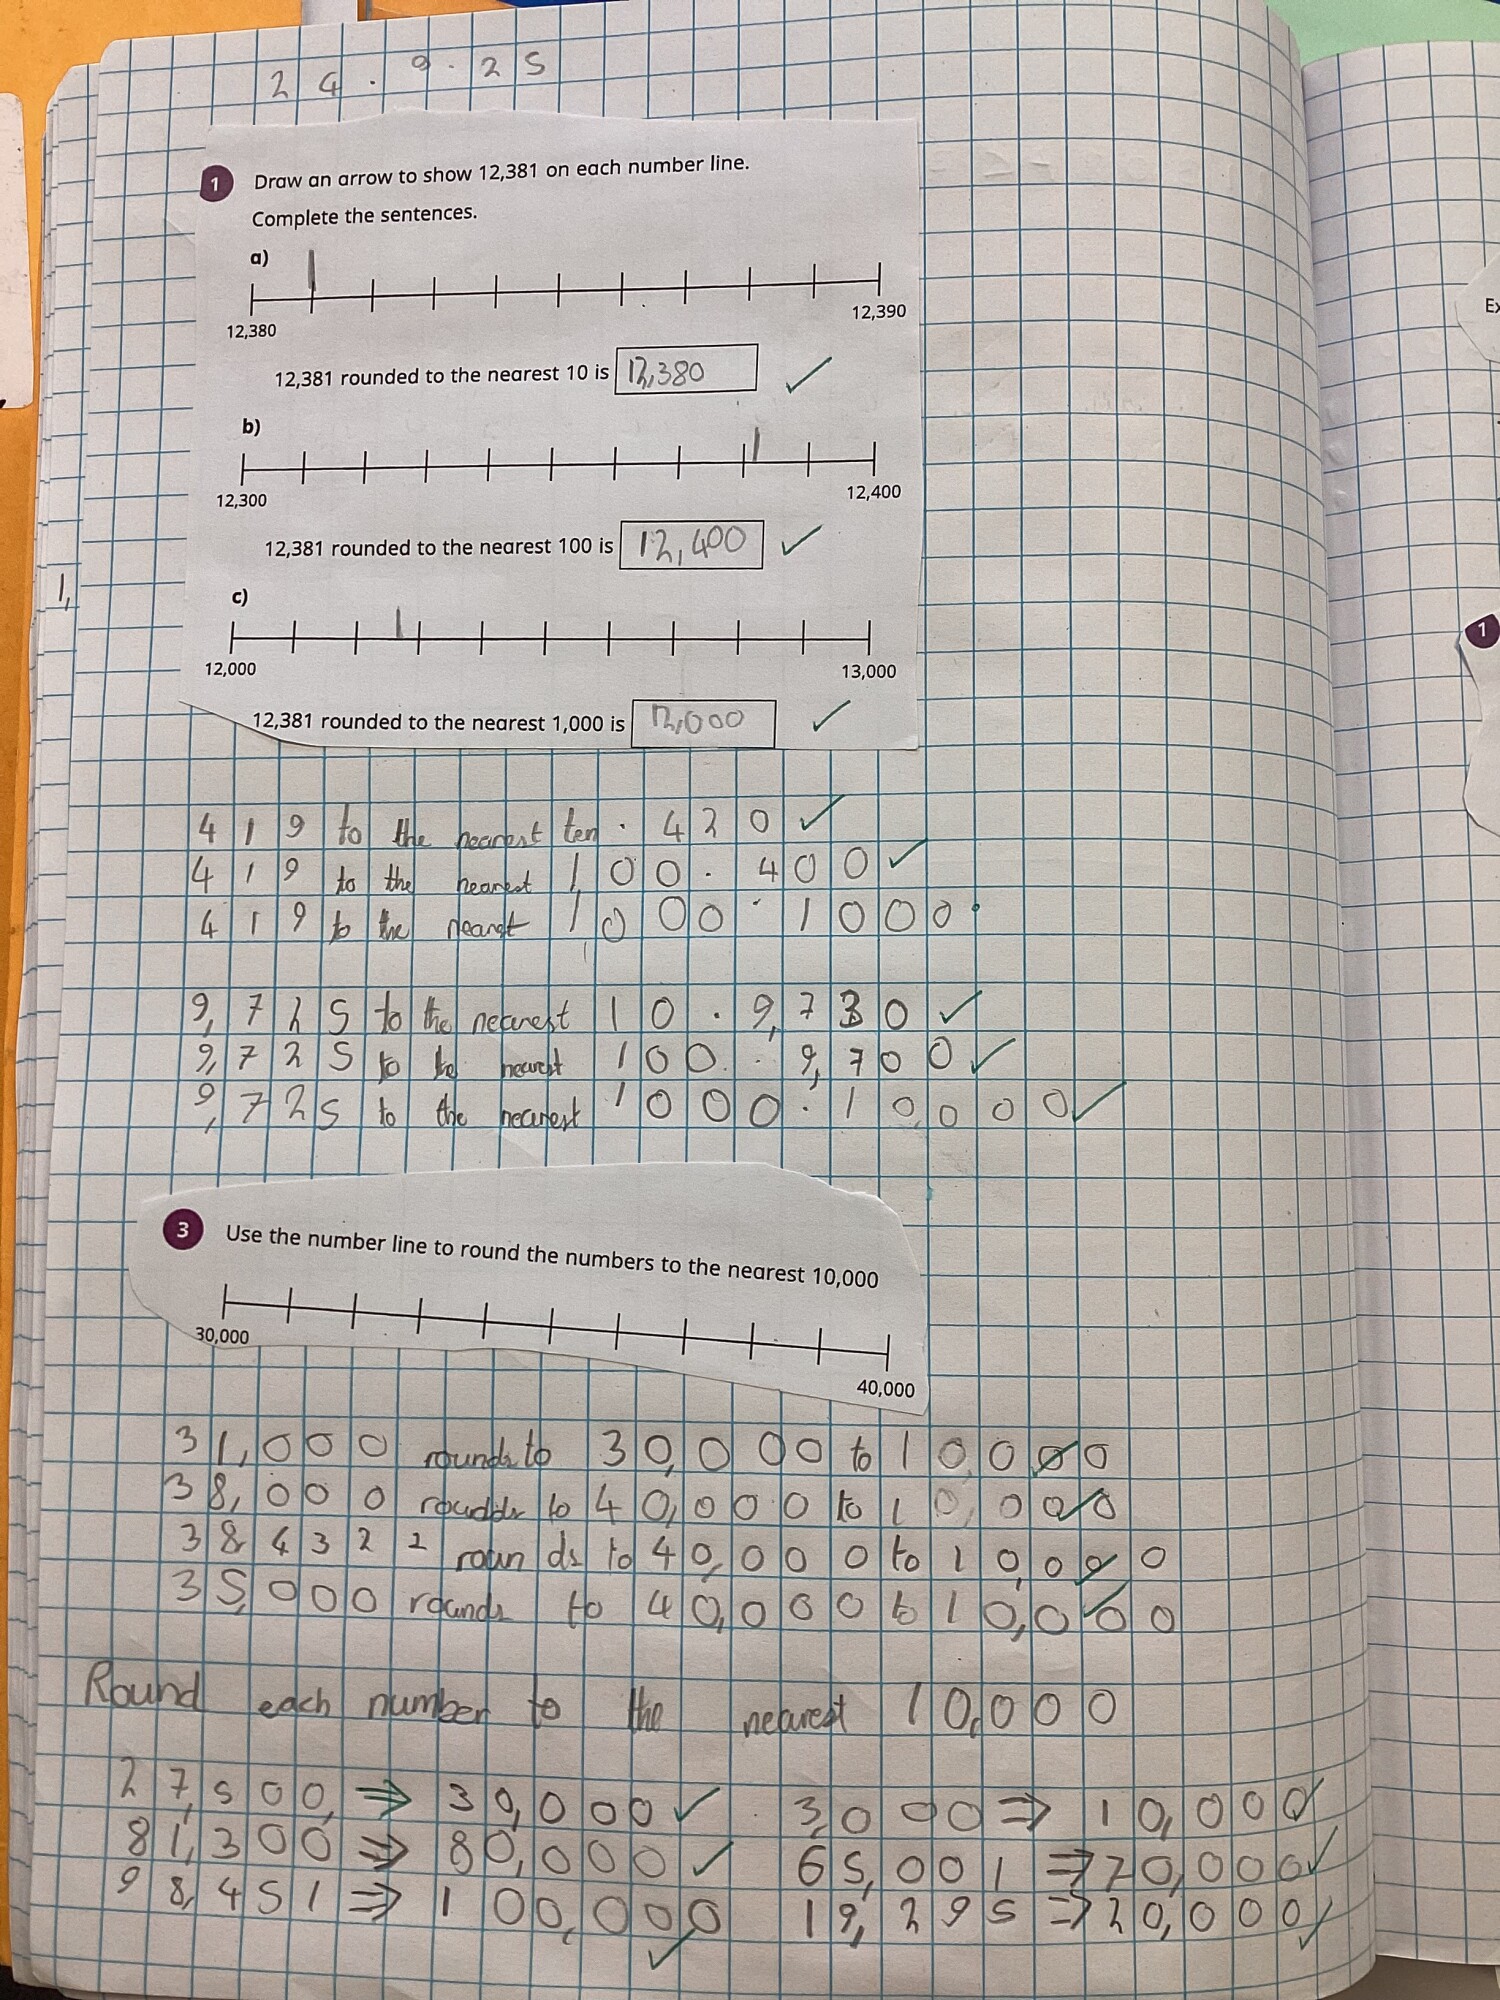 24.9.25
1 Draw an arrow to show 12,381 on each number line.
Complete the sentences.
a)
12,380 12,390
12,381 rounded to the nearest 10 is 12,380
b)
12,300 12,400
12,381 rounded to the nearest 100 is 12,400
c)
1,
12,000 13,000
12,381 rounded to the nearest 1,000 is 12,000
419 to the nearest ten. 420
419 to the nearest 100. 400
419 to the nearest 1000. 1000
9,725 to the nearest 10. 9,730
9,725 to the nearest 100. 9,700
9,725 to the nearest 1000. 10,000
3 Use the number line to round the numbers to the nearest 10,000
30,000 40,000
31,000 rounds to 30,000 to 10,000
38,000 roudds to 40,000 to 10,000
384322 rounds to 40,000 to 10,000
35,000 rounds to 40,000 to 10,000
Round each number to the nearest 10,000
27,500, ⇒ 30,000 3,000 ⇒ 10,000
81,300 ⇒ 80,000 65,001 ⇒ 70,000
98,451 ⇒ 100,000 19,295 ⇒ 20,000
Ex
1